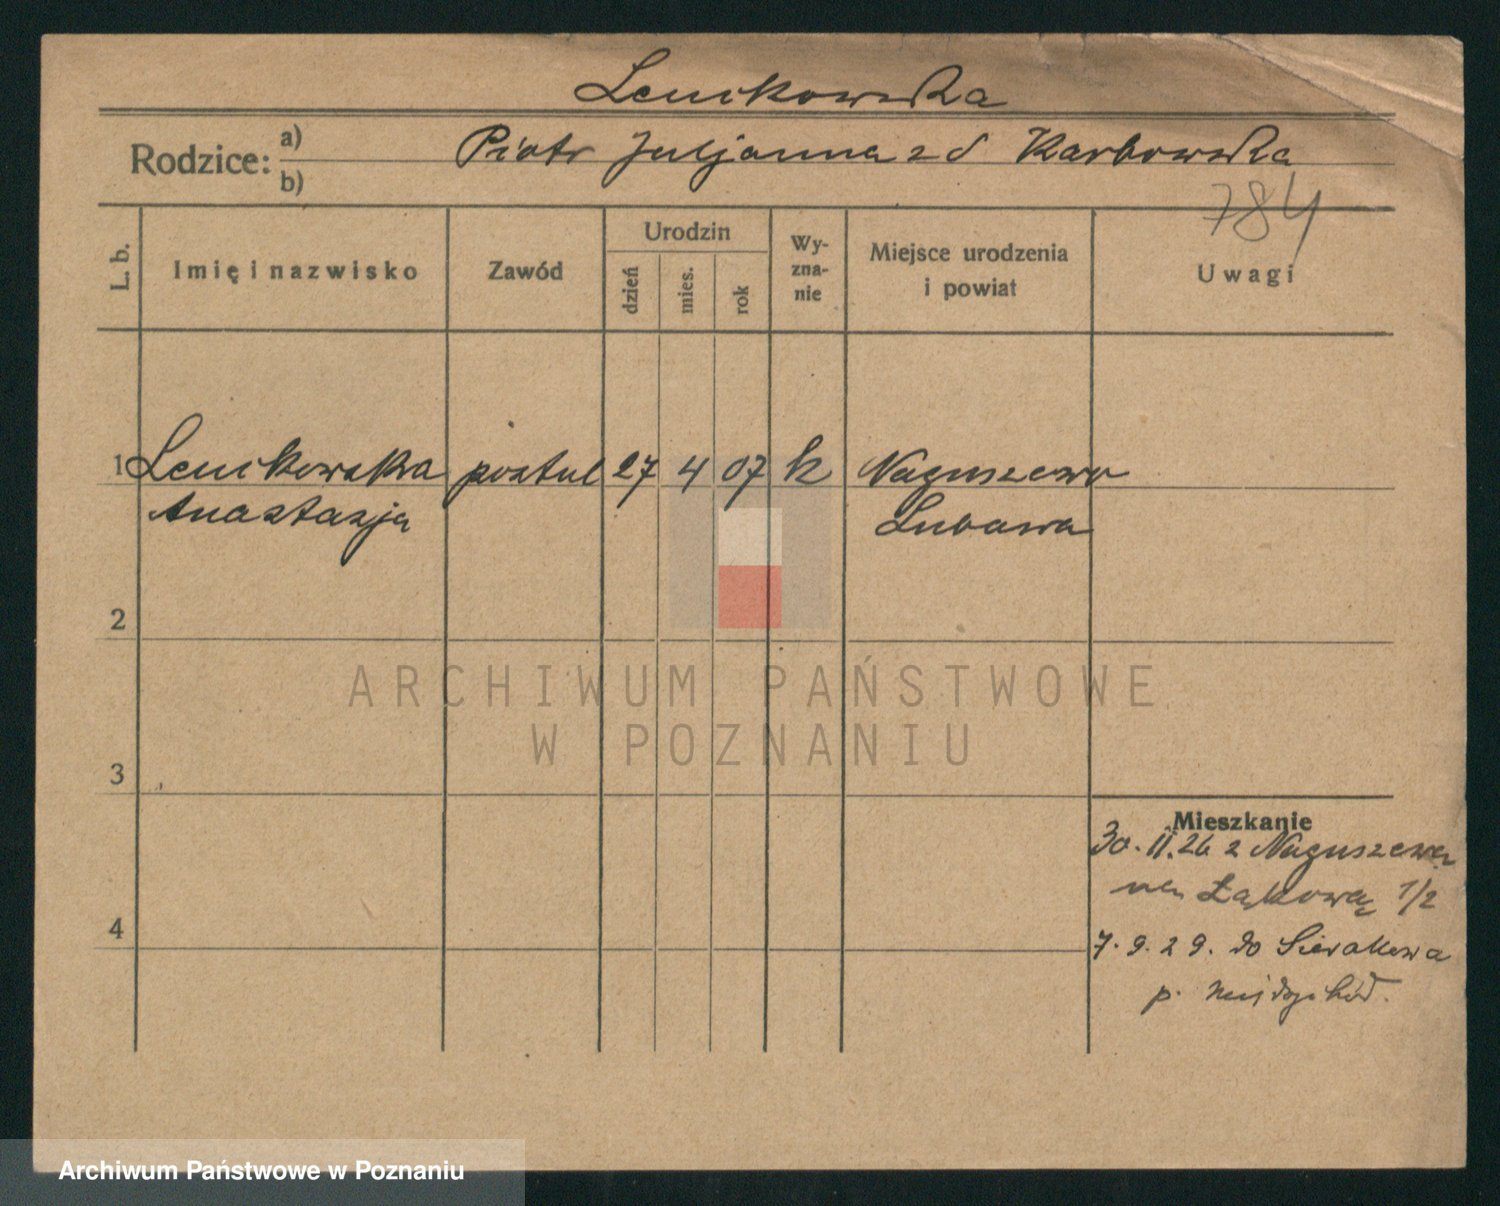 Lenckowska
Rodzice: a) b) Piotr Juljanna z d Karbowska
784
L. b.
Imię i nazwisko
Zawód
Urodzin
dzień
mies.
rok
Wy-
zna-
nie
Miejsce urodzenia
i powiat
Uwagi
1 Lenckowska postul 27 4 07 k Naguszewo
Anastazja Lubawa
2
3
4
Mieszkanie
30.11.26 z Naguszewa
na Łąkową 1/2
7.9.29. do Sierakowa
p. Międzychód.
ARCHIWUM PAŃSTWOWE
W POZNANIU
Archiwum Państwowe w Poznaniu